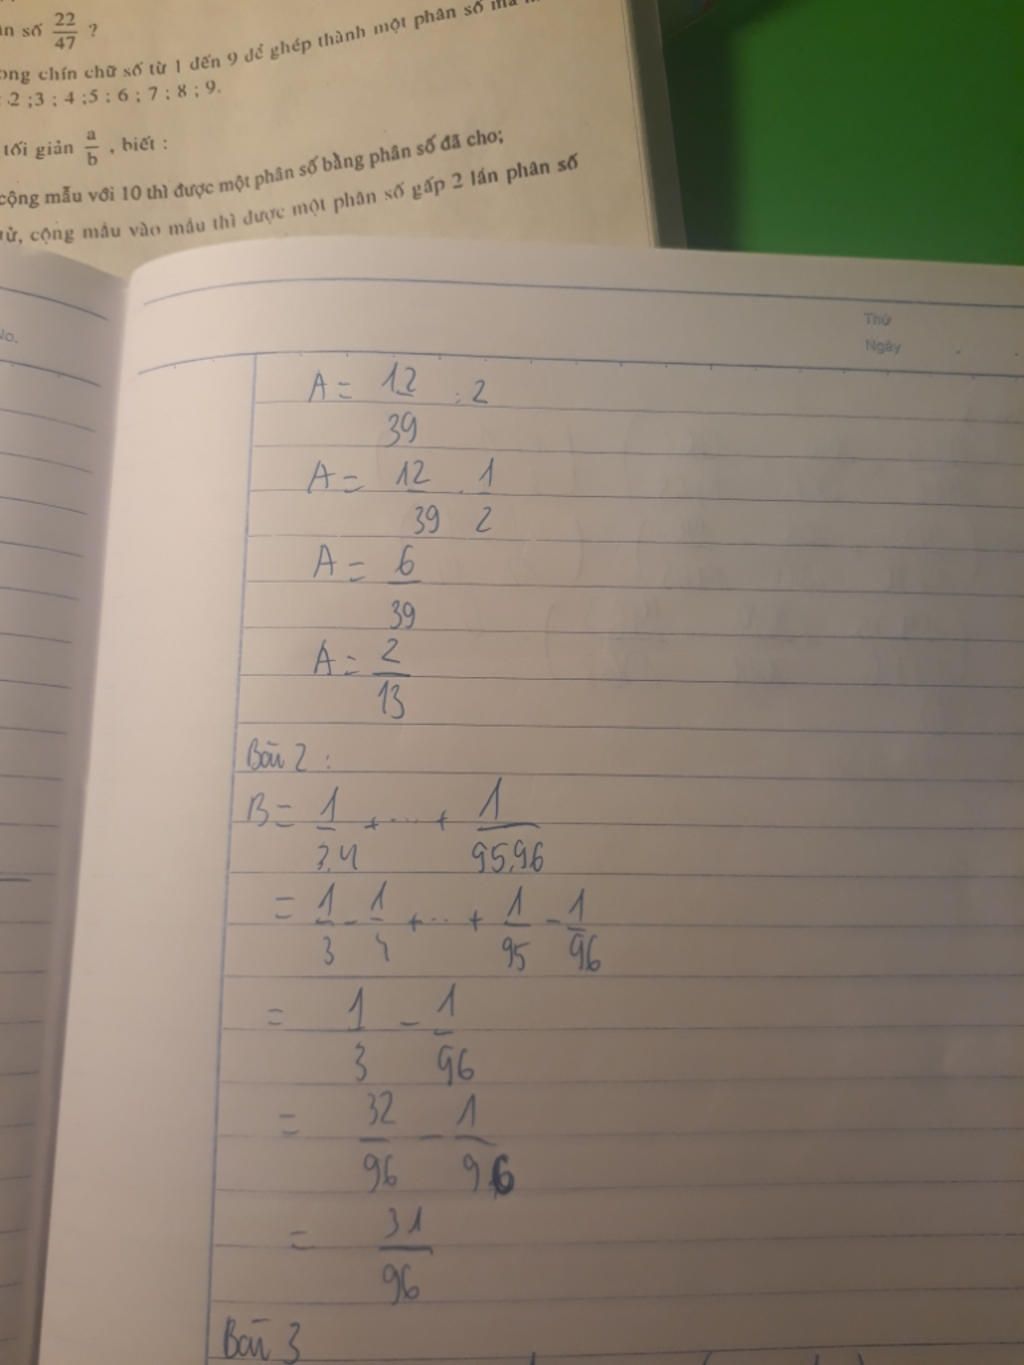 số 22/47 ?
chín chữ số từ 1 đến 9 để ghép thành một phân số mà
2 ; 3 ; 4 ; 5 ; 6 ; 7 ; 8 ; 9.
tối giản a/b , biết :
cộng mẫu với 10 thì được một phân số bằng phân số đã cho;
tử, cộng mẫu vào mẫu thì được một phân số gấp 2 lần phân số
No.
Thứ
Ngày
A = 12/39 : 2
A = 12/39 . 1/2
A = 6/39
A = 2/13
Bài 2 :
B = 1/3.4 + ... + 1/95.96
= 1/3 - 1/4 + ... + 1/95 - 1/96
= 1/3 - 1/96
= 32/96 - 1/96
= 31/96
Bài 3